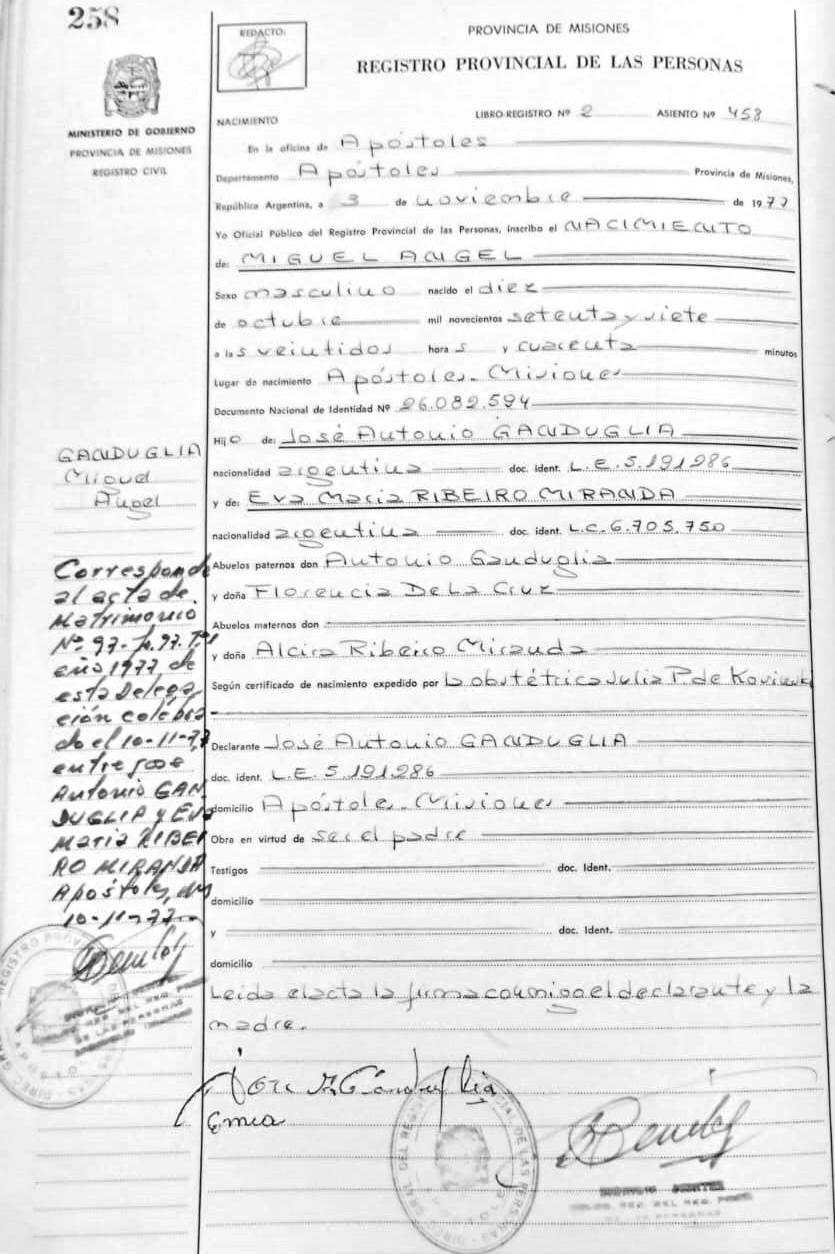 258
REDACTO:
PROVINCIA DE MISIONES
REGISTRO PROVINCIAL DE LAS PERSONAS
MINISTERIO DE GOBIERNO
PROVINCIA DE MISIONES
REGISTRO CIVIL
NACIMIENTO
LIBRO-REGISTRO Nº 2 ASIENTO Nº 458
En la oficina de Apóstoles
Departamento Apóstoles Provincia de Misiones,
República Argentina, a 3 de noviembre de 1977
Yo Oficial Público del Registro Provincial de las Personas, inscribo el NACIMIENTO
de: MIGUEL ANGEL
Sexo masculino nacido el diez
de octubre mil novecientos setenta y siete
a las veintidos horas y cuarenta minutos
Lugar de nacimiento Apóstoles - Misiones
Documento Nacional de Identidad Nº 26.082.594
Hijo de: José Antonio GANDUGLIA
nacionalidad argentina doc. ident. L.E. 5.191.986
y de: Eva Maria RIBEIRO MIRANDA
nacionalidad argentina doc. ident. L.C. 6.705.750
Abuelos paternos don Antonio Ganduglia
y doña Florencia De La Cruz
Abuelos maternos don
y doña Alcira Ribeiro Miranda
Según certificado de nacimiento expedido por la obstétrica Julia P. de
Declarante José Antonio GANDUGLIA
doc. ident. L.E. 5.191.986
domicilio Apóstoles - Misiones
Obra en virtud de ser el padre
Testigos doc. Ident.
domicilio
y doc. Ident.
domicilio
Leida el acta la firma conmigo el declarante y la
madre.
GANDUGLIA
Miguel
Angel
Corresponde
al acta de
Matrimonio
Nº 97- Fº 97. Tº 1
año 1977 de
esta Delega
ción celebra
do el 10-11-77
entre Jose
Antonio GAN
DUGLIA y Eva
Maria RIBEI
RO MIRANDA
Apóstoles,
10-11-77